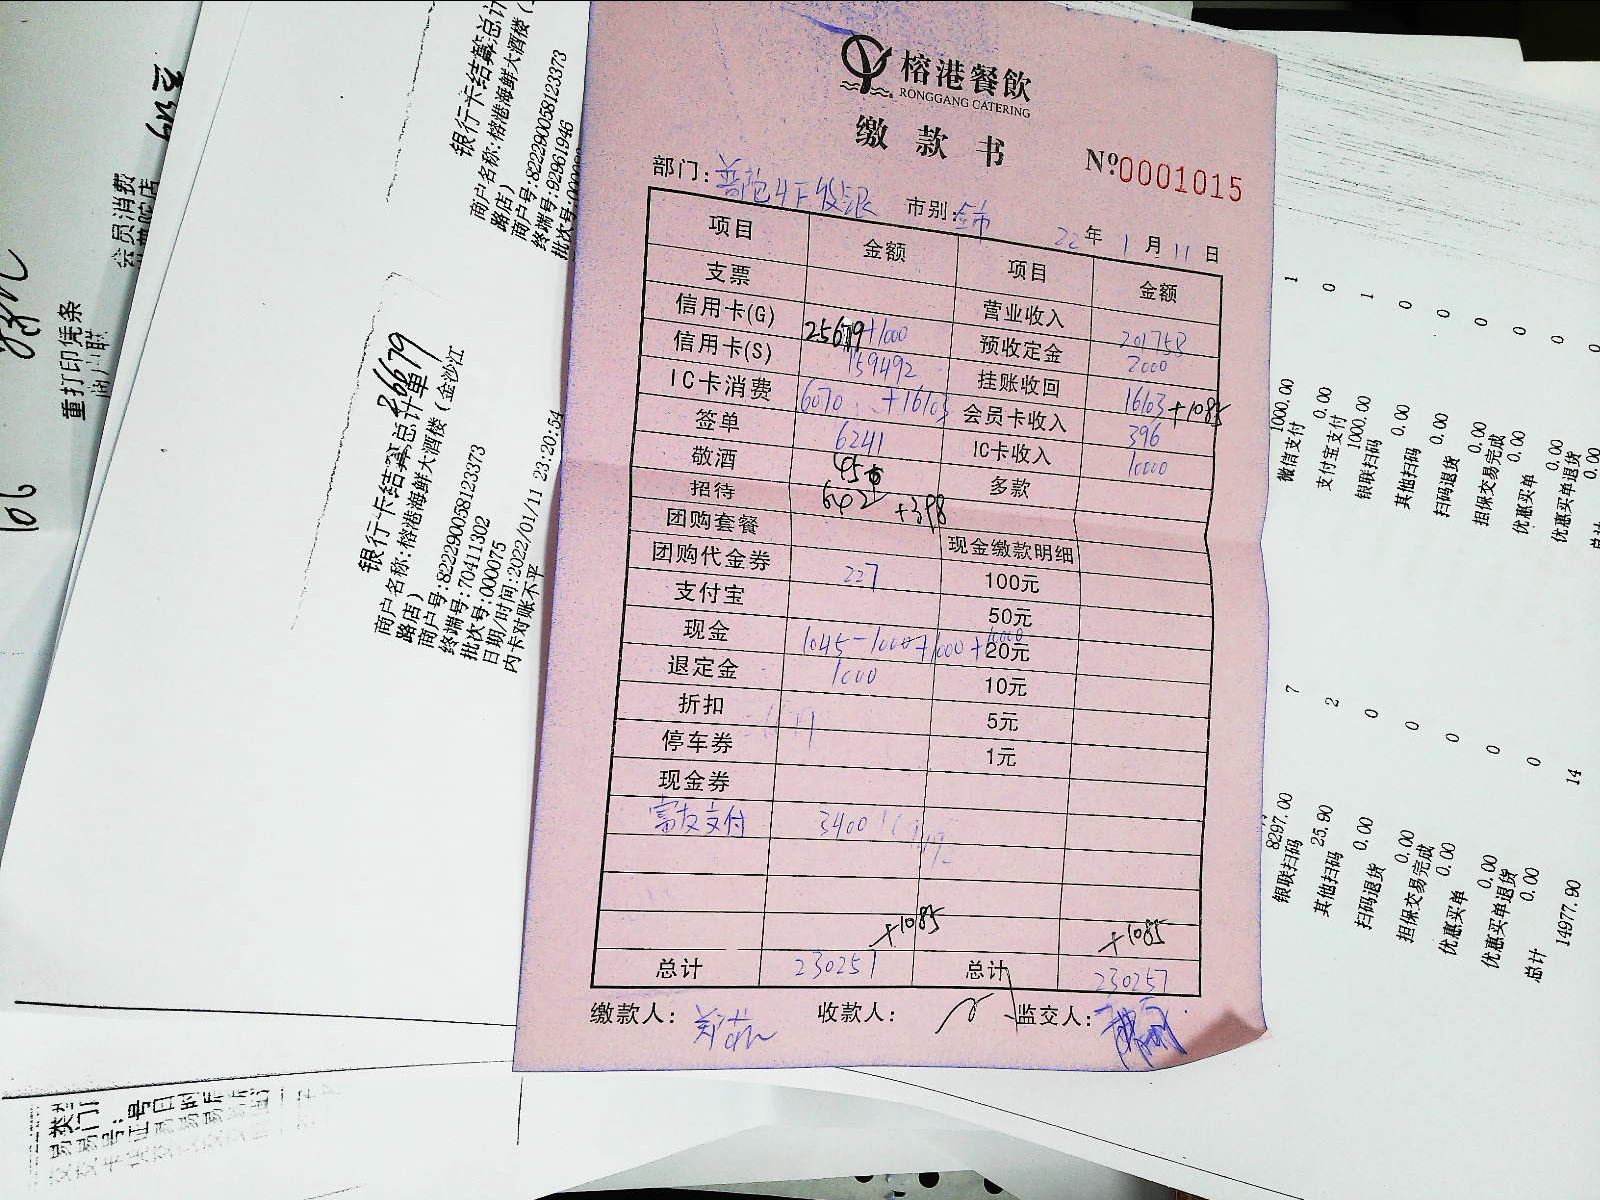 榕港餐飲
RONGGANG CATERING
缴款书
Nº0001015
部门:
市别:全市
22年1月11日
项目 金额 项目 金额
支票 营业收入 201758
信用卡(G) 25679+1000 预收定金 2000
信用卡(S) 159492 挂账收回 16103+1085
IC卡消费 6070 +16103 会员卡收入 396
签单 6241 IC卡收入 10000
敬酒 多款
招待 642 +398
团购套餐 现金缴款明细
团购代金券 227 100元
支付宝 50元
现金 1045-1000+1000+1000 20元
退定金 1000 10元
折扣 5元
停车券 1元
现金券
富友支付 3400
+1085 +1085
总计 230257 总计 230257
缴款人:
收款人:
监交人:
银行卡结算总计
商户名称:榕港海鲜大酒楼(
路店)
商户号:822290058123373
终端号:92961946
银行卡结算总计单
26679
商户名称:榕港海鲜大酒楼(金沙江
路店)
商户号:822290058123373
终端号:70411302
批次号:000075
日期/时间:2022/01/11 23:20:54
内卡对账不平
会员消费
重打印凭条
商户联
166
1
1000.00
微信支付 0
0.00
支付宝支付 1
1000.00
银联扫码 0
0.00
其他扫码 0
0.00
扫码退货 0
0.00
担保交易完成 0
0.00
优惠买单 0
0.00
优惠买单退货 0
0.00
总计
7
8297.00
银联扫码 2
25.90
其他扫码 0
0.00
扫码退货 0
0.00
担保交易完成 0
0.00
优惠买单 0
0.00
优惠买单退货 0
0.00
总计 14
14977.90